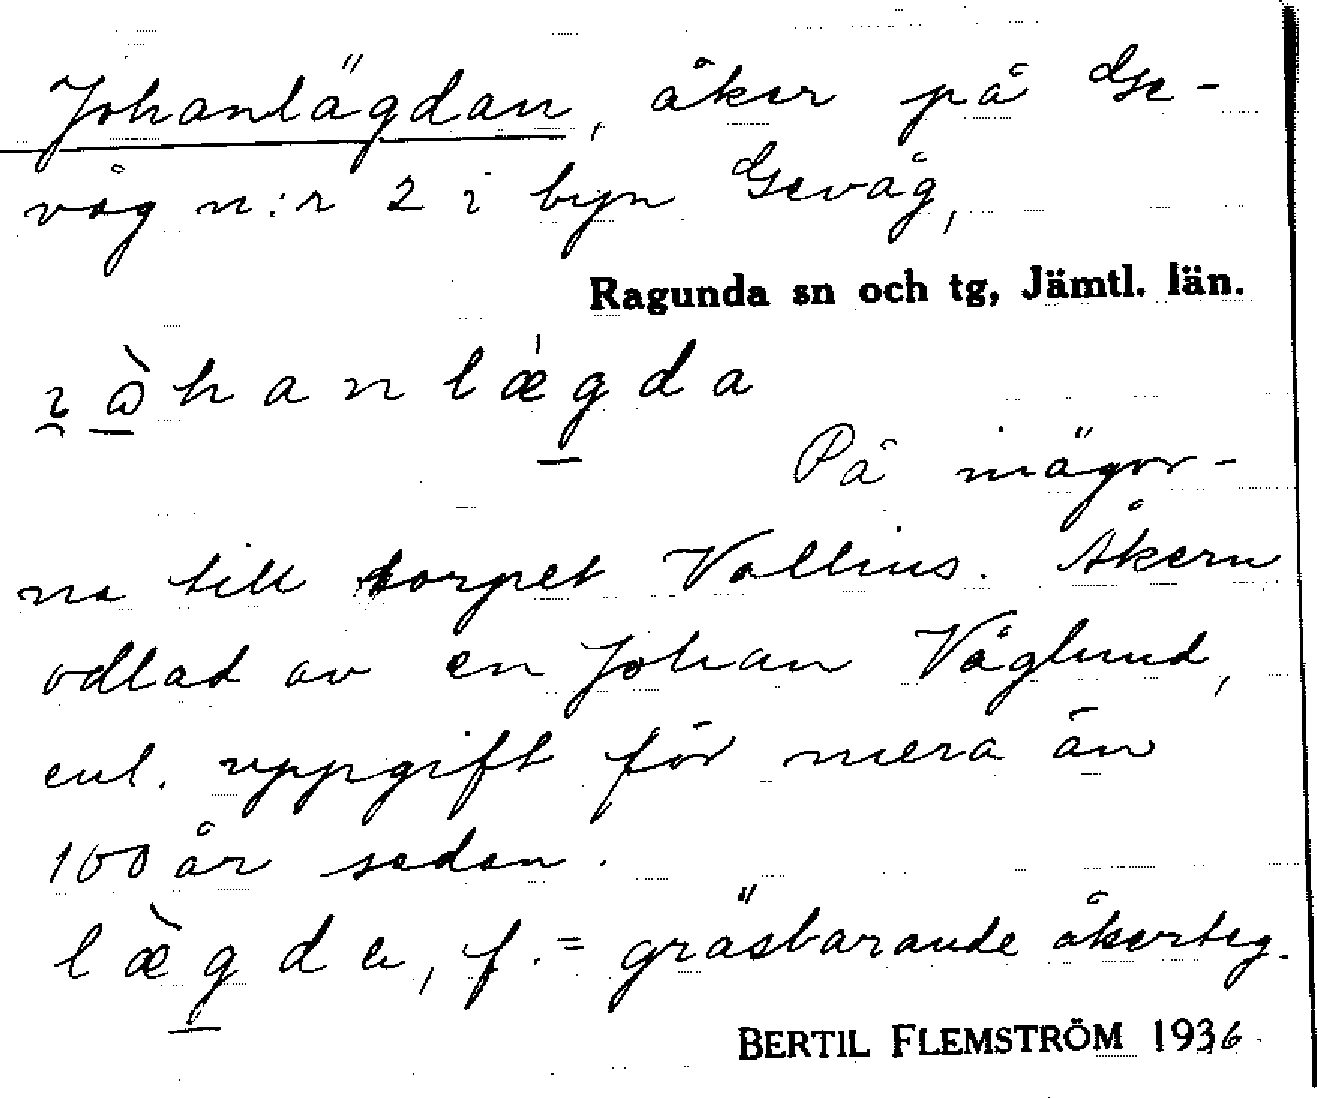 Johanlägdan, åker på Ge-
våg n:r 2 i byn Gevåg,
Ragunda sn och tg, Jämtl. län.
hanlægda
På inägor-
na till torpet Vallius. Åkern
odlad av en Johan Våglund,
enl. uppgift för mera än
100 år sedan.
læ̀gda, f. = gräsbärande åkerteg.
BERTIL FLEMSTRÖM 1936